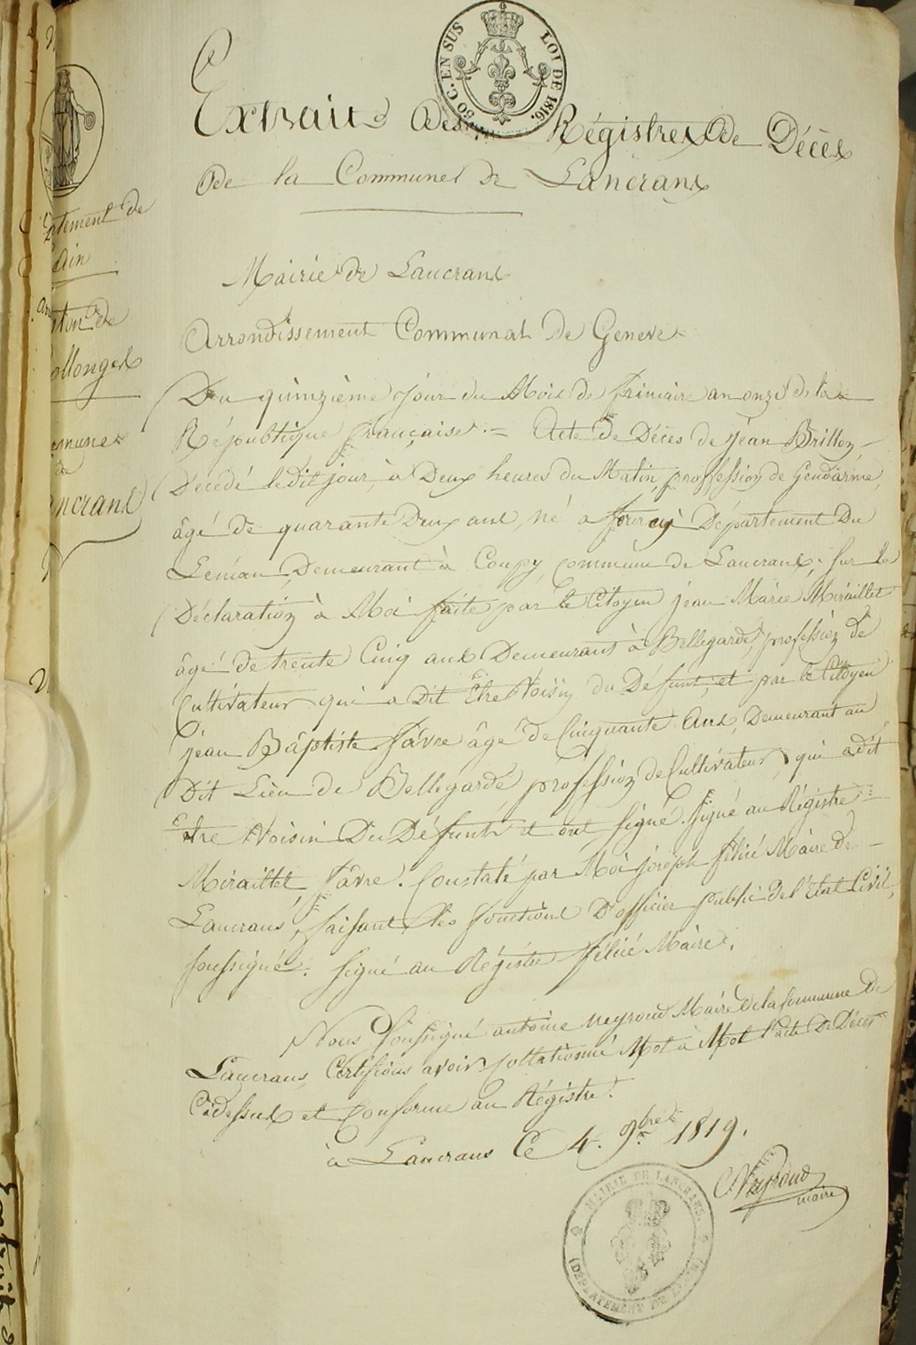 50 C. EN SUS LOI DE 1816.
Extrait des Régistres de Décès
de la Commune de Lancrans
Mairie de Lancrans
Arrondissement Communal de Geneve
Du quinzième jour du Mois de frimaire an onze de la
République française. – Acte de Décès de jean Brillon
Décédé le dit jour, à Deux heures du Matin, proffession de Gendarme,
âgé de quarante Deux ans, né a Département Du
Leman, Demeurant à Coupy, commune de Lancrans, sur la
Déclaration à Moi faite par le Citoyen jean Marie Miraillet
âgé de trente Cinq ans Demeurant à Bellegarde, profession de
Cultivateur qui a Dit Etre Voisin du Défunt, et par le Citoyen
jean Bâptiste fâvre âgé de Cinquante Ans, Demeurant au
Dit Lieu de Bellegarde profession de Cultivateur, qui a dit
être Voisin Du Défunt et ont signé. signé au Régistre
Miraillet, fâvre. Constaté par Moi joseph félié Maire de
Lancrans, faisant les fonctions D'officier public de l'Etat Civil,
soussigné. signé au Régistre félié Maire.
Nous soussigné antoine neyroud Maire de la Commune de
Lancrans, Certifions avoir collationné Mot à Mot l'acte De Décès
Cidessus et Conforme au Régistre.
à Lancrans Ce 4. 9bre 1819.
Neyroud
maire
MAIRIE DE LANCRANS.
(DÉPARTEMENT DE L'AIN)
tement de
ain
ton de
ollonges
mmune
de
ncrans